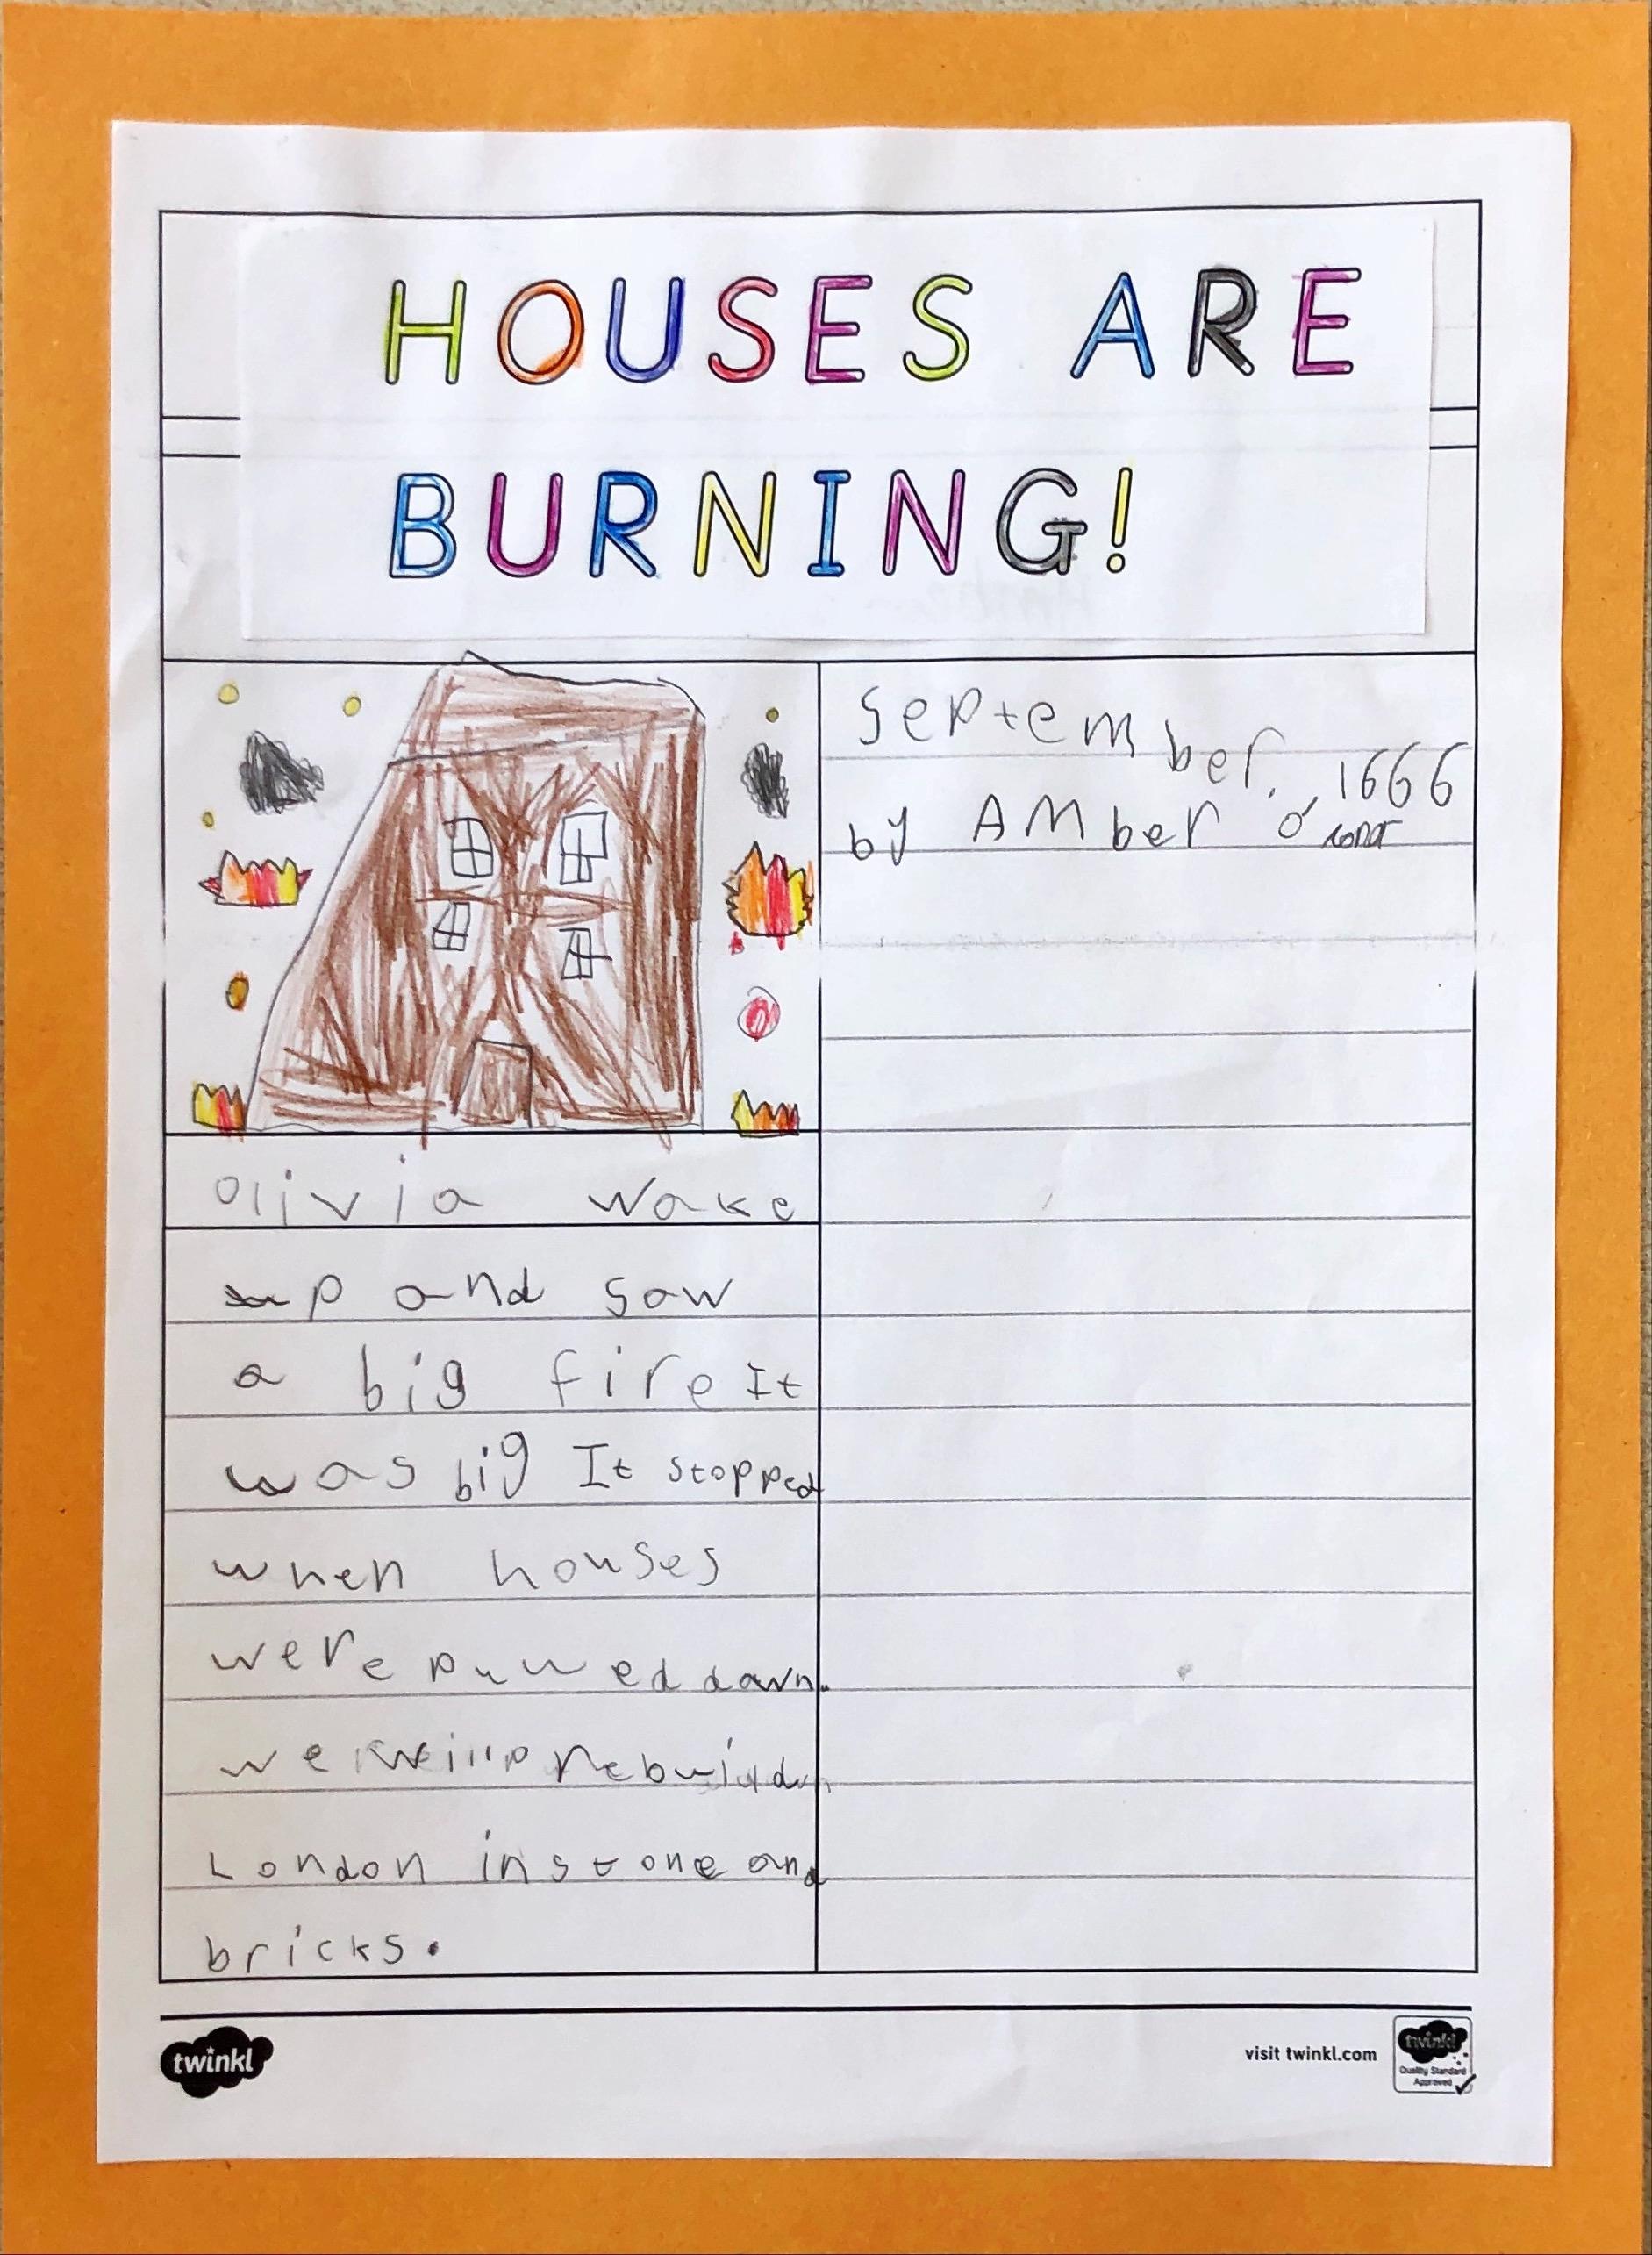 HOUSES ARE
BURNING!
September, 1666
by AMber o'
Olivia wake
up and saw
a big fire It
was big It stopped
when houses
were pulled down.
we will rebuild
London in stone and
bricks.
twinkl
visit twinkl.com
twinkl
Quality Standard
Approved